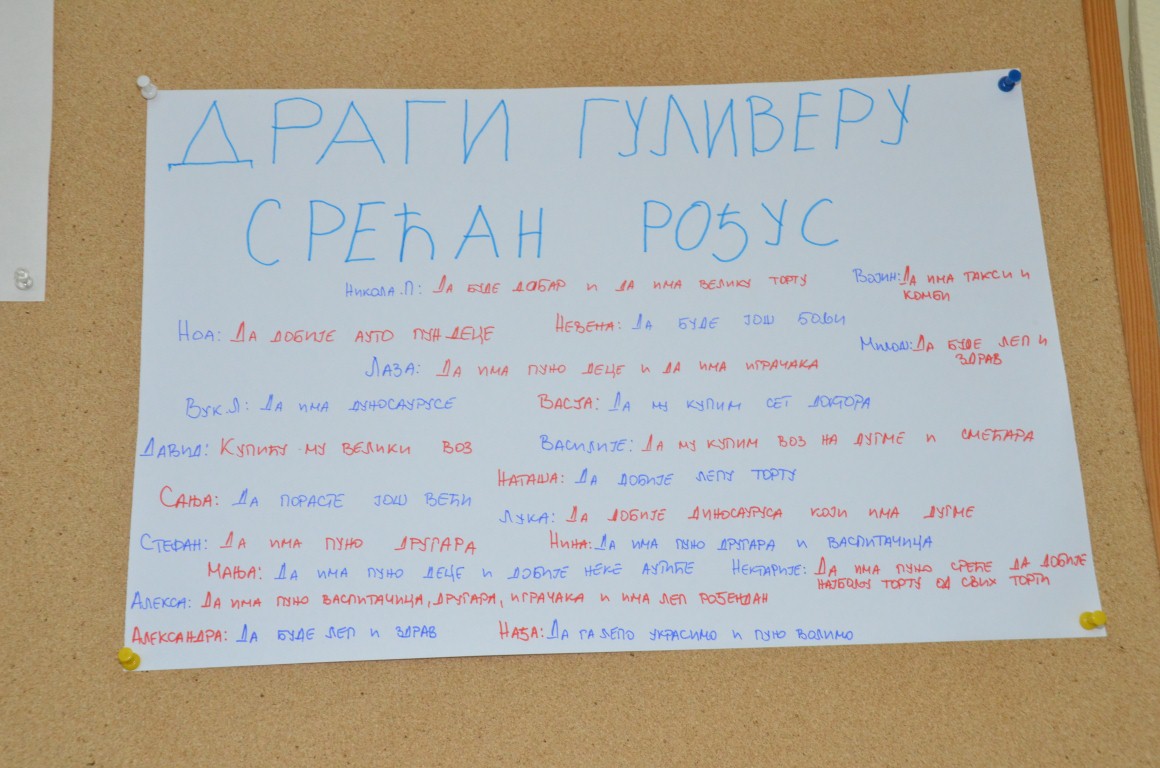 ДРАГИ ГУЛИВЕРУ
СРЕЋАН РОЂУС
НИКОЛА.П: ДА БУДЕ ДОБАР И ДА ИМА ВЕЛИКУ ТОРТУ
ВОЈИН: ДА ИМА ТАКСИ И
КОМБИ
НОА: ДА ДОБИЈЕ АУТО ПУН ДЕЦЕ
НЕВЕНА: ДА БУДЕ ЈОШ БОЉИ
МИЛОШ: ДА БУДЕ ЛЕП И
ЗДРАВ
ЛАЗА: ДА ИМА ПУНО ДЕЦЕ И ДА ИМА ИГРАЧАКА
ВУК.Л: ДА ИМА ДИНОСАУРУСЕ
ВАСЈА: ДА МУ КУПИМ СЕТ ДОКТОРА
ДАВИД: КУПИЋУ МУ ВЕЛИКИ ВОЗ
ВАСИЛИЈЕ: ДА МУ КУПИМ ВОЗ НА ДУГМЕ И СМЕЋАРА
НАТАША: ДА ДОБИЈЕ ЛЕПУ ТОРТУ
САЊА: ДА ПОРАСТЕ ЈОШ ВЕЋИ
ЛУКА: ДА ДОБИЈЕ ДИНОСАУРУСА КОЈИ ИМА ДУГМЕ
СТЕФАН: ДА ИМА ПУНО ДРУГАРА
НИНА: ДА ИМА ПУНО ДРУГАРА И ВАСПИТАЧИЦА
МАЊА: ДА ИМА ПУНО ДЕЦЕ И ДОБИЈЕ НЕКЕ АУТИЋЕ
НЕКТАРИЈЕ: ДА ИМА ПУНО СРЕЋЕ ДА ДОБИЈЕ
НАЈБОЉУ ТОРТУ ОД СВИХ ТОРТИ
АЛЕКСА: ДА ИМА ПУНО ВАСПИТАЧИЦА, ДРУГАРА, ИГРАЧАКА И ИМА ЛЕП РОЂЕНДАН
АЛЕКСАНДРА: ДА БУДЕ ЛЕП И ЗДРАВ
НАЂА: ДА ГА ЛЕПО УКРАСИМО И ПУНО ВОЛИМО